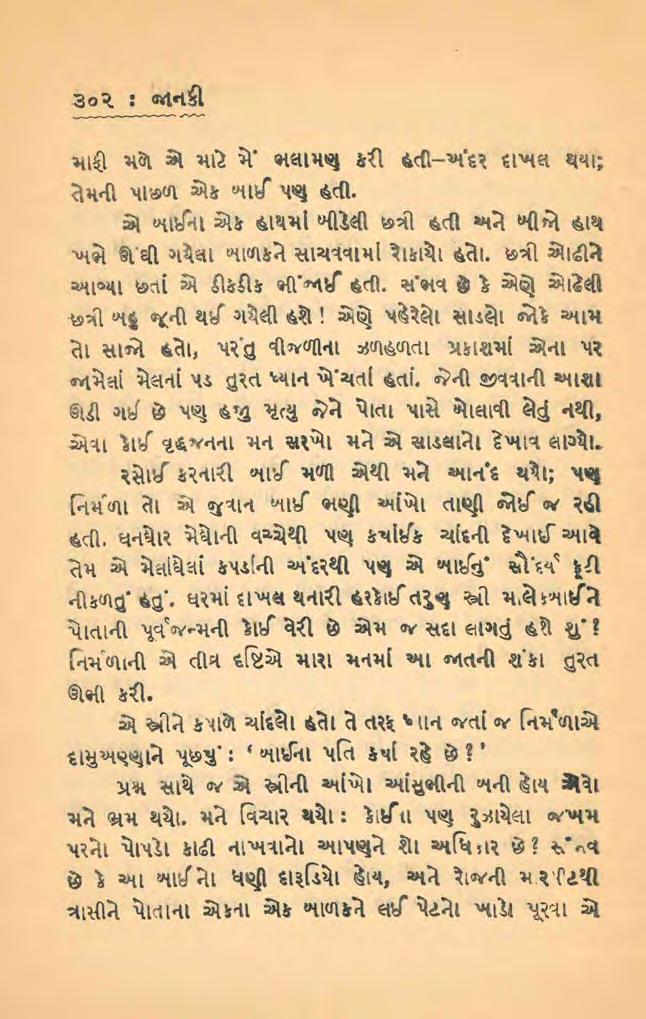 ૩૦૨ : જાનકી
માફી મળે એ માટે મેં ભલામણ કરી હતી–અંદર દાખલ થયા;
તેમની પાછળ એક બાઈ પણ હતી.
એ બાઈના એક હાથમાં બીડેલી છત્રી હતી અને બીજો હાથ
ખભે ઊંઘી ગયેલા બાળકને સાચવવામાં રોકાયો હતો. છત્રી ઓઢીને
આવ્યા છતાં એ ઠીકઠીક ભીંજાઈ હતી. સંભવ છે કે એણે ઓઢેલી
છત્રી બહુ જૂની થઈ ગયેલી હશે! એણે પહેરેલો સાડલો જોકે આમ
તો સાજો હતો, પરંતુ વીજળીના ઝળહળતા પ્રકાશમાં એના પર
જામેલાં મેલનાં પડ તુરત ધ્યાન ખેંચતાં હતાં. જેની જીવવાની આશા
ઊડી ગઈ છે પણ હજુ મૃત્યુ જેને પોતા પાસે બોલાવી લેતું નથી,
એવા કોઈ વૃદ્ધજનના મન સરખો મને એ સાડલાનો દેખાવ લાગ્યો.
રસોઈ કરનારી બાઈ મળી એથી મને આનંદ થયો; પણ
નિર્મળા તો એ જુવાન બાઈ ભણી આંખો તાણી જોઈ જ રહી
હતી. ઘનઘોર મેઘોની વચ્ચેથી પણ કયાંઈક ચાંદની દેખાઈ આવે
તેમ એ મેલાંઘેલાં કપડાંની અંદરથી પણ એ બાઈનું સૌંદર્ય ફૂટી
નીકળતું હતું. ઘરમાં દાખલ થનારી હરકોઈ તરુણ સ્ત્રી માલેકબાઈને
પોતાની પૂર્વજન્મની કોઈ વેરી છે એમ જ સદા લાગતું હશે શું?
નિર્મળાની એ તીવ્ર દૃષ્ટિએ મારા મનમાં આ જાતની શંકા તુરત
ઊભી કરી.
એ સ્ત્રીને કપાળે ચાંદલો હતો તે તરફ ધ્યાન જતાં જ નિર્મળાએ
દામુઅણ્ણાને પૂછ્યું : ‘બાઈના પતિ કયાં રહે છે?’
પ્રશ્ન સાથે જ એ સ્ત્રીની આંખો આંસુભીની બની હોય એવો
મને ભ્રમ થયો. મને વિચાર થયો : કોઈના પણ રુઝાયેલા જખમ
પરનો પોપડો કાઢી નાખવાનો આપણને શો અધિકાર છે? સંભવ
છે કે આ બાઈનો ધણી દારૂડિયો હોય, અને રોજની મારપીટથી
ત્રાસીને પોતાના એકના એક બાળકને લઈ પેટનો ખાડો પૂરવા એ